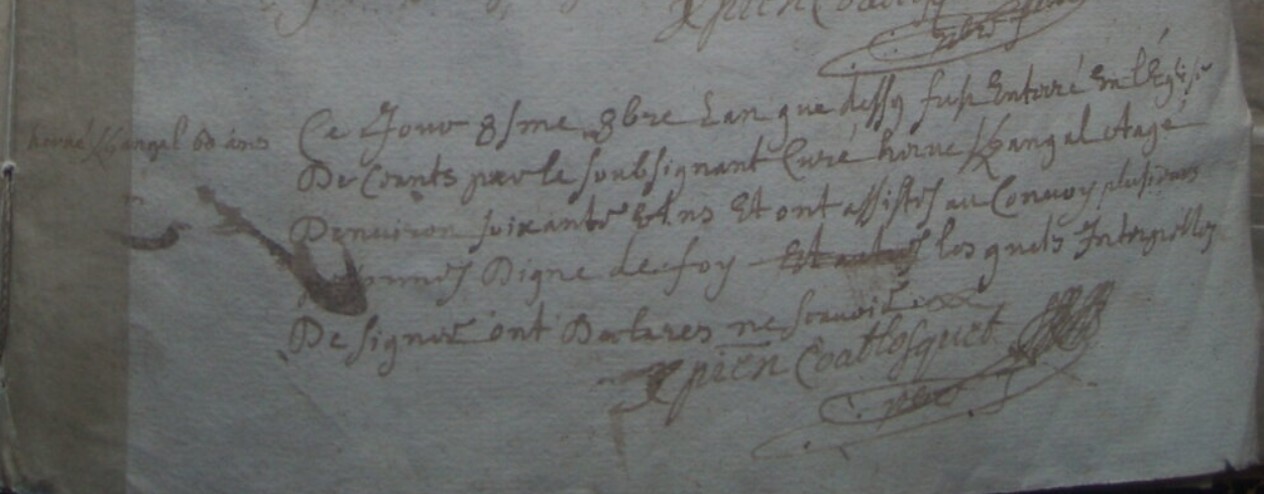 Xpien Coatlosquet
herué K/angal 60 ans
Ce Jour 8sme 9bre Lan que dessus fust Enterré En l'Eglise
De par le soubsignant Curé herue K/angal Aagé
Denuiron soixante Et ont assistés au Conuoy plusieurs
Digne de foy lesquels Interpelles
De signer ont Declares ne scauoir
Xpien Coatlosquet